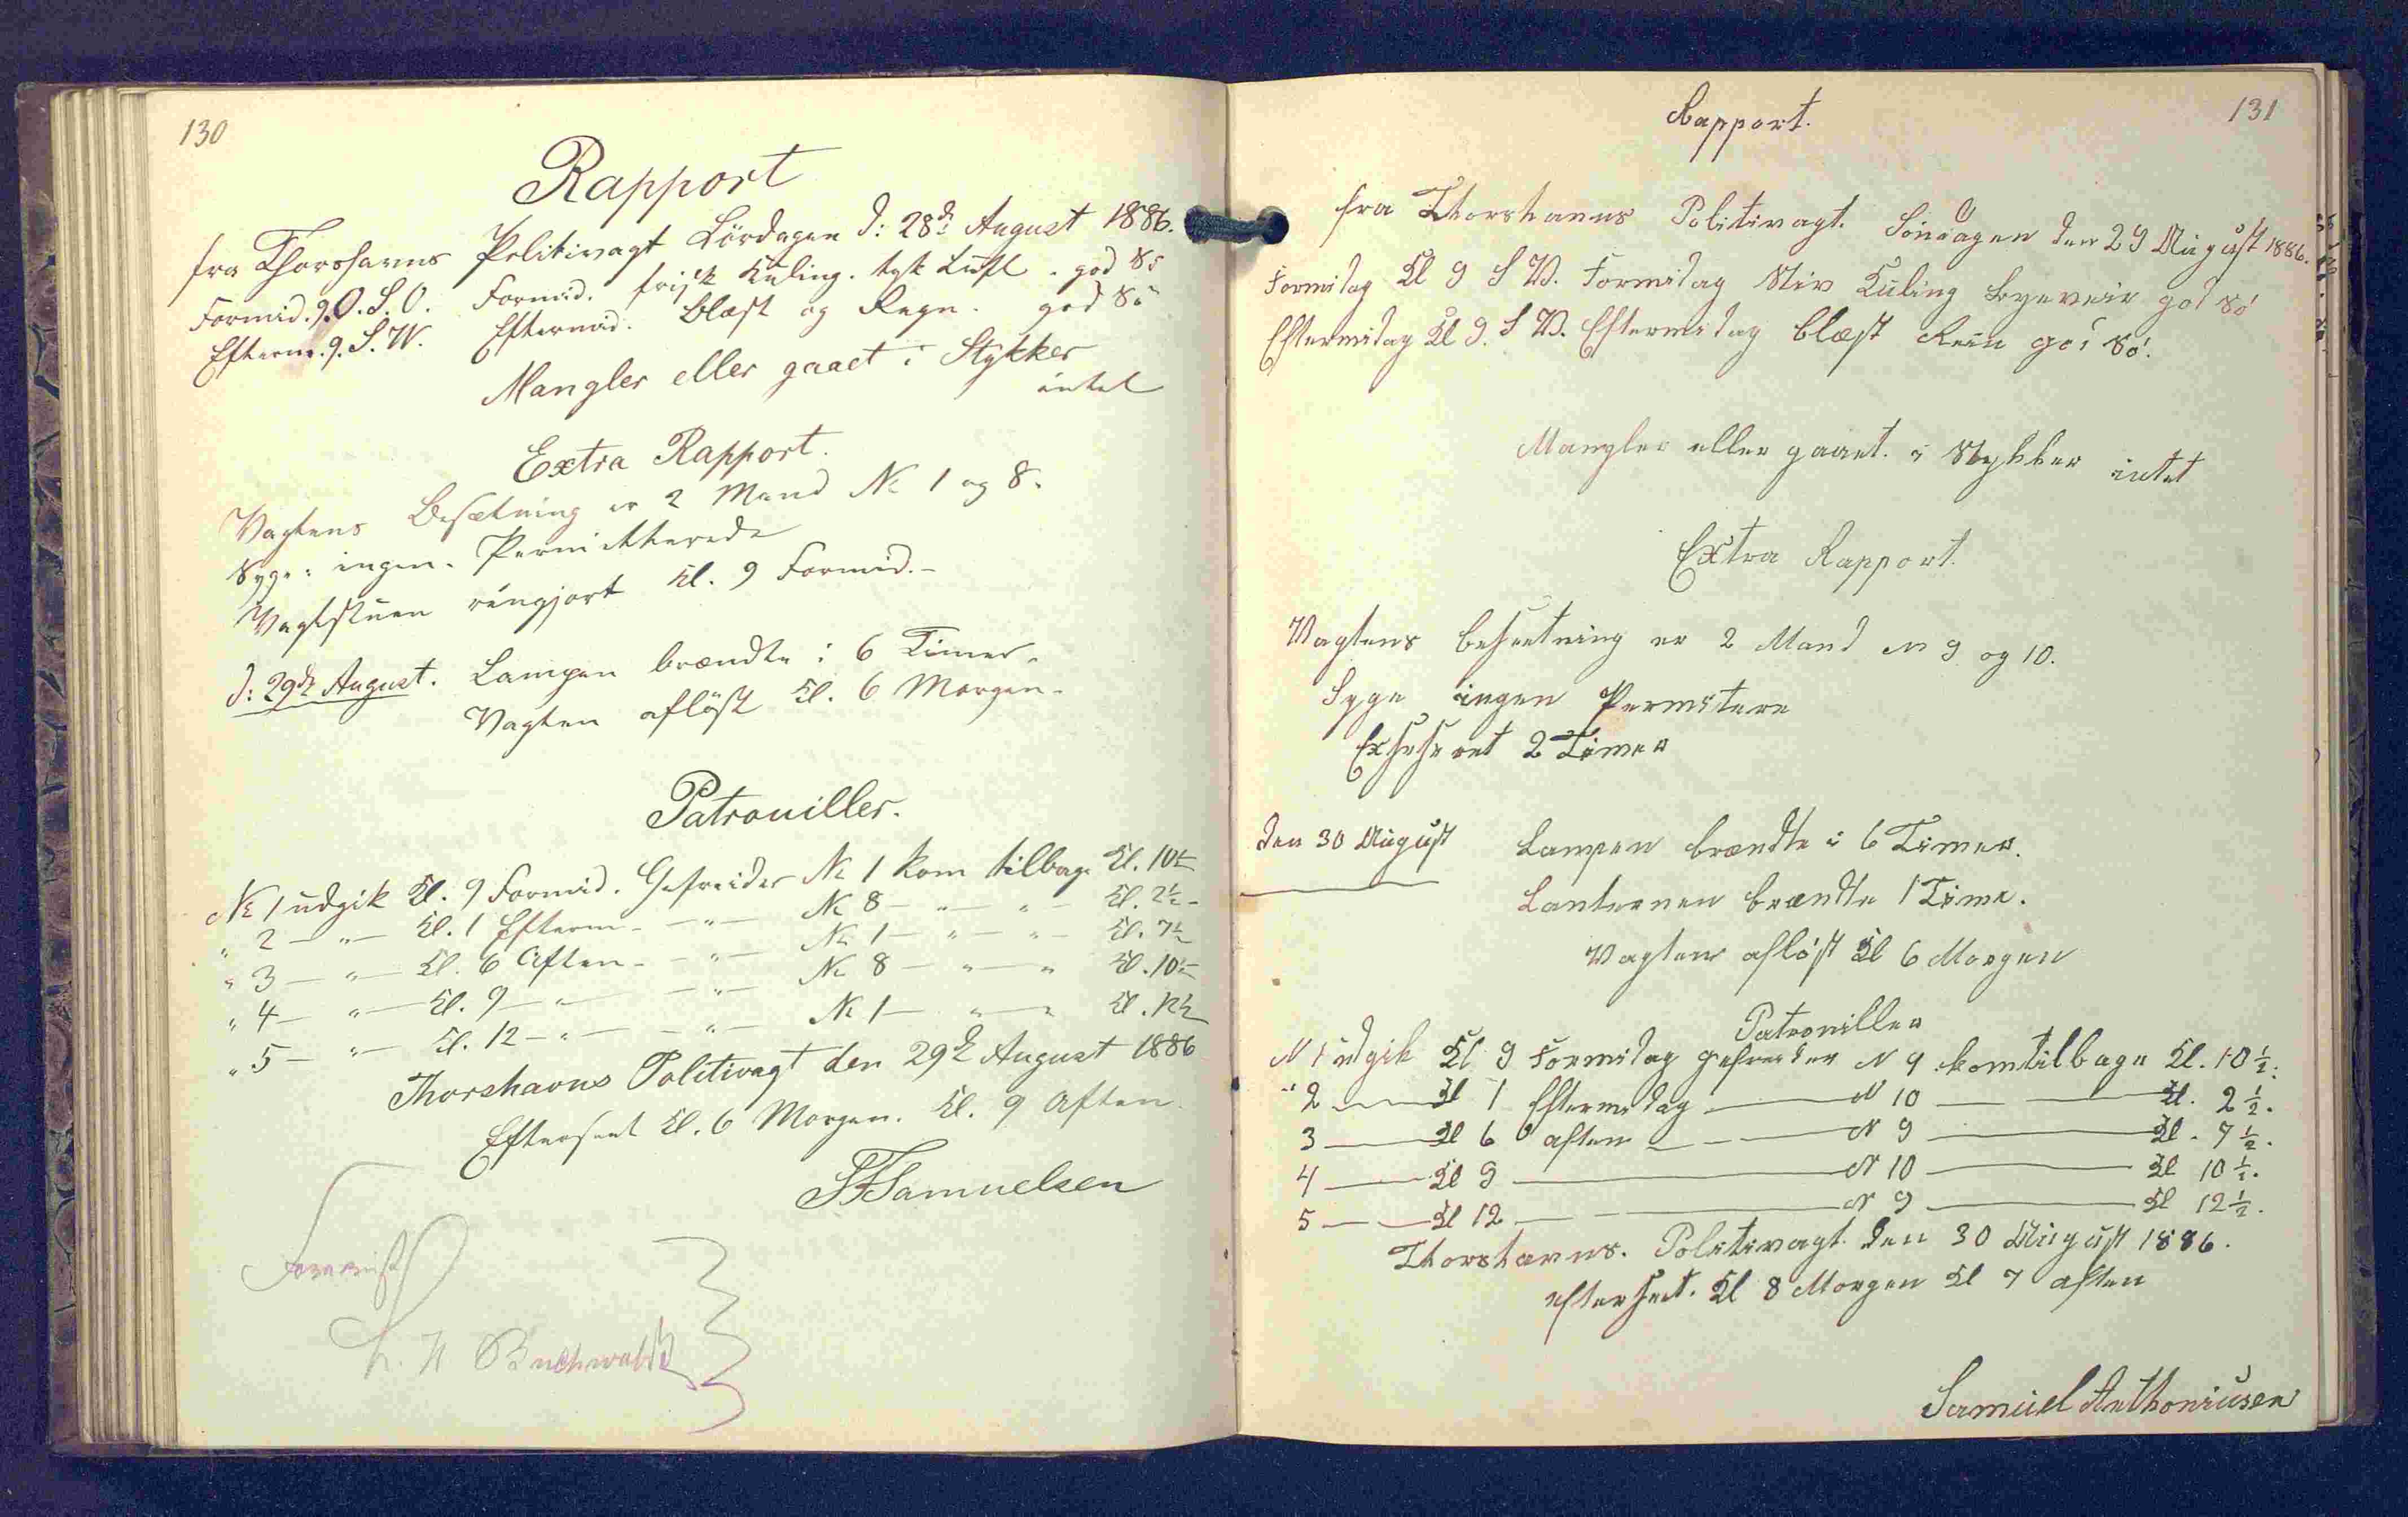 130
Rapport
fra Thorshavns Politivagt Lørdagen d: 28de August 1886.
Formid. 9. O.S.O. Formid. frisk Kuling. tyk Luft. god Sø
Efterm. 9. S.W. Eftermid. Blæst og Regn. god Sø
Mangler eller gaaet i Stykker
intet
Extra Rapport.
Vagtens Besætning er 2 Mand No 1 og 8.
Syge: ingen. Permitterede
Vagtstuen réngjort Kl. 9 Formid.-
d: 29de August. Lampen brændte i 6 Timer.
Vagten afløst Kl. 6 Morgen.
Patrouiller.
No 1 udgik Kl. 9 Formid. Gefreider No 1 kom tilbage Kl. 10½
" 2 — " — Kl. 1 Efterm. — " — No 8 — " — " — Kl. 2½
" 3 — " — Kl. 6 Aften — " — No 1 — " — " — Kl. 7½
" 4 — " — Kl. 9 — " — — " — No 8 — " — " Kl. 10½
" 5 — " — Kl. 12 — " — — " — No 1 — " — " Kl. 12½
Thorshavns Politivagt den 29de August 1886
Efterseet Kl. 6 Morgen. Kl. 9 Aften.
Samuelsen
H. N Buchwaldt
131
Rapport.
fra Thorshavns Politivagt. Søndagen den 29 August 1886.
Formidag Kl 9 S V. Formidag Stiv Kuling Byeveir god Sø
Eftermidag Kl 9. S V. Eftermidag blæst Rein god Sø.
Mangler eller gaaet. i Stykker intet
Extra Rapport.
Vagtens besætning er 2 Mand N 9 og 10.
Syge ingen Permitere
Exseseret 2 Timer
den 30 August Lampen brændte i 6 Timer.
Lanternen brændte 1 Time.
Vagten afløst Kl 6 Morgen
Patrouiller
N 1 udgik Kl 9 Formidag gefreider N 9 kom tilbage Kl. 10½.
" 2 — Kl 1 Eftermidag — N 10 — Kl. 2½.
3 — Kl 6 aften — N 9 — Kl. 7½.
4 — Kl 9 — N 10 — Kl 10½.
5 — Kl 12 — N 9 — Kl 12½.
Thorshavns. Politivagt den 30 August 1886.
efterseet. Kl 8 Morgen Kl 7 aften
Samuel Anthoniusen